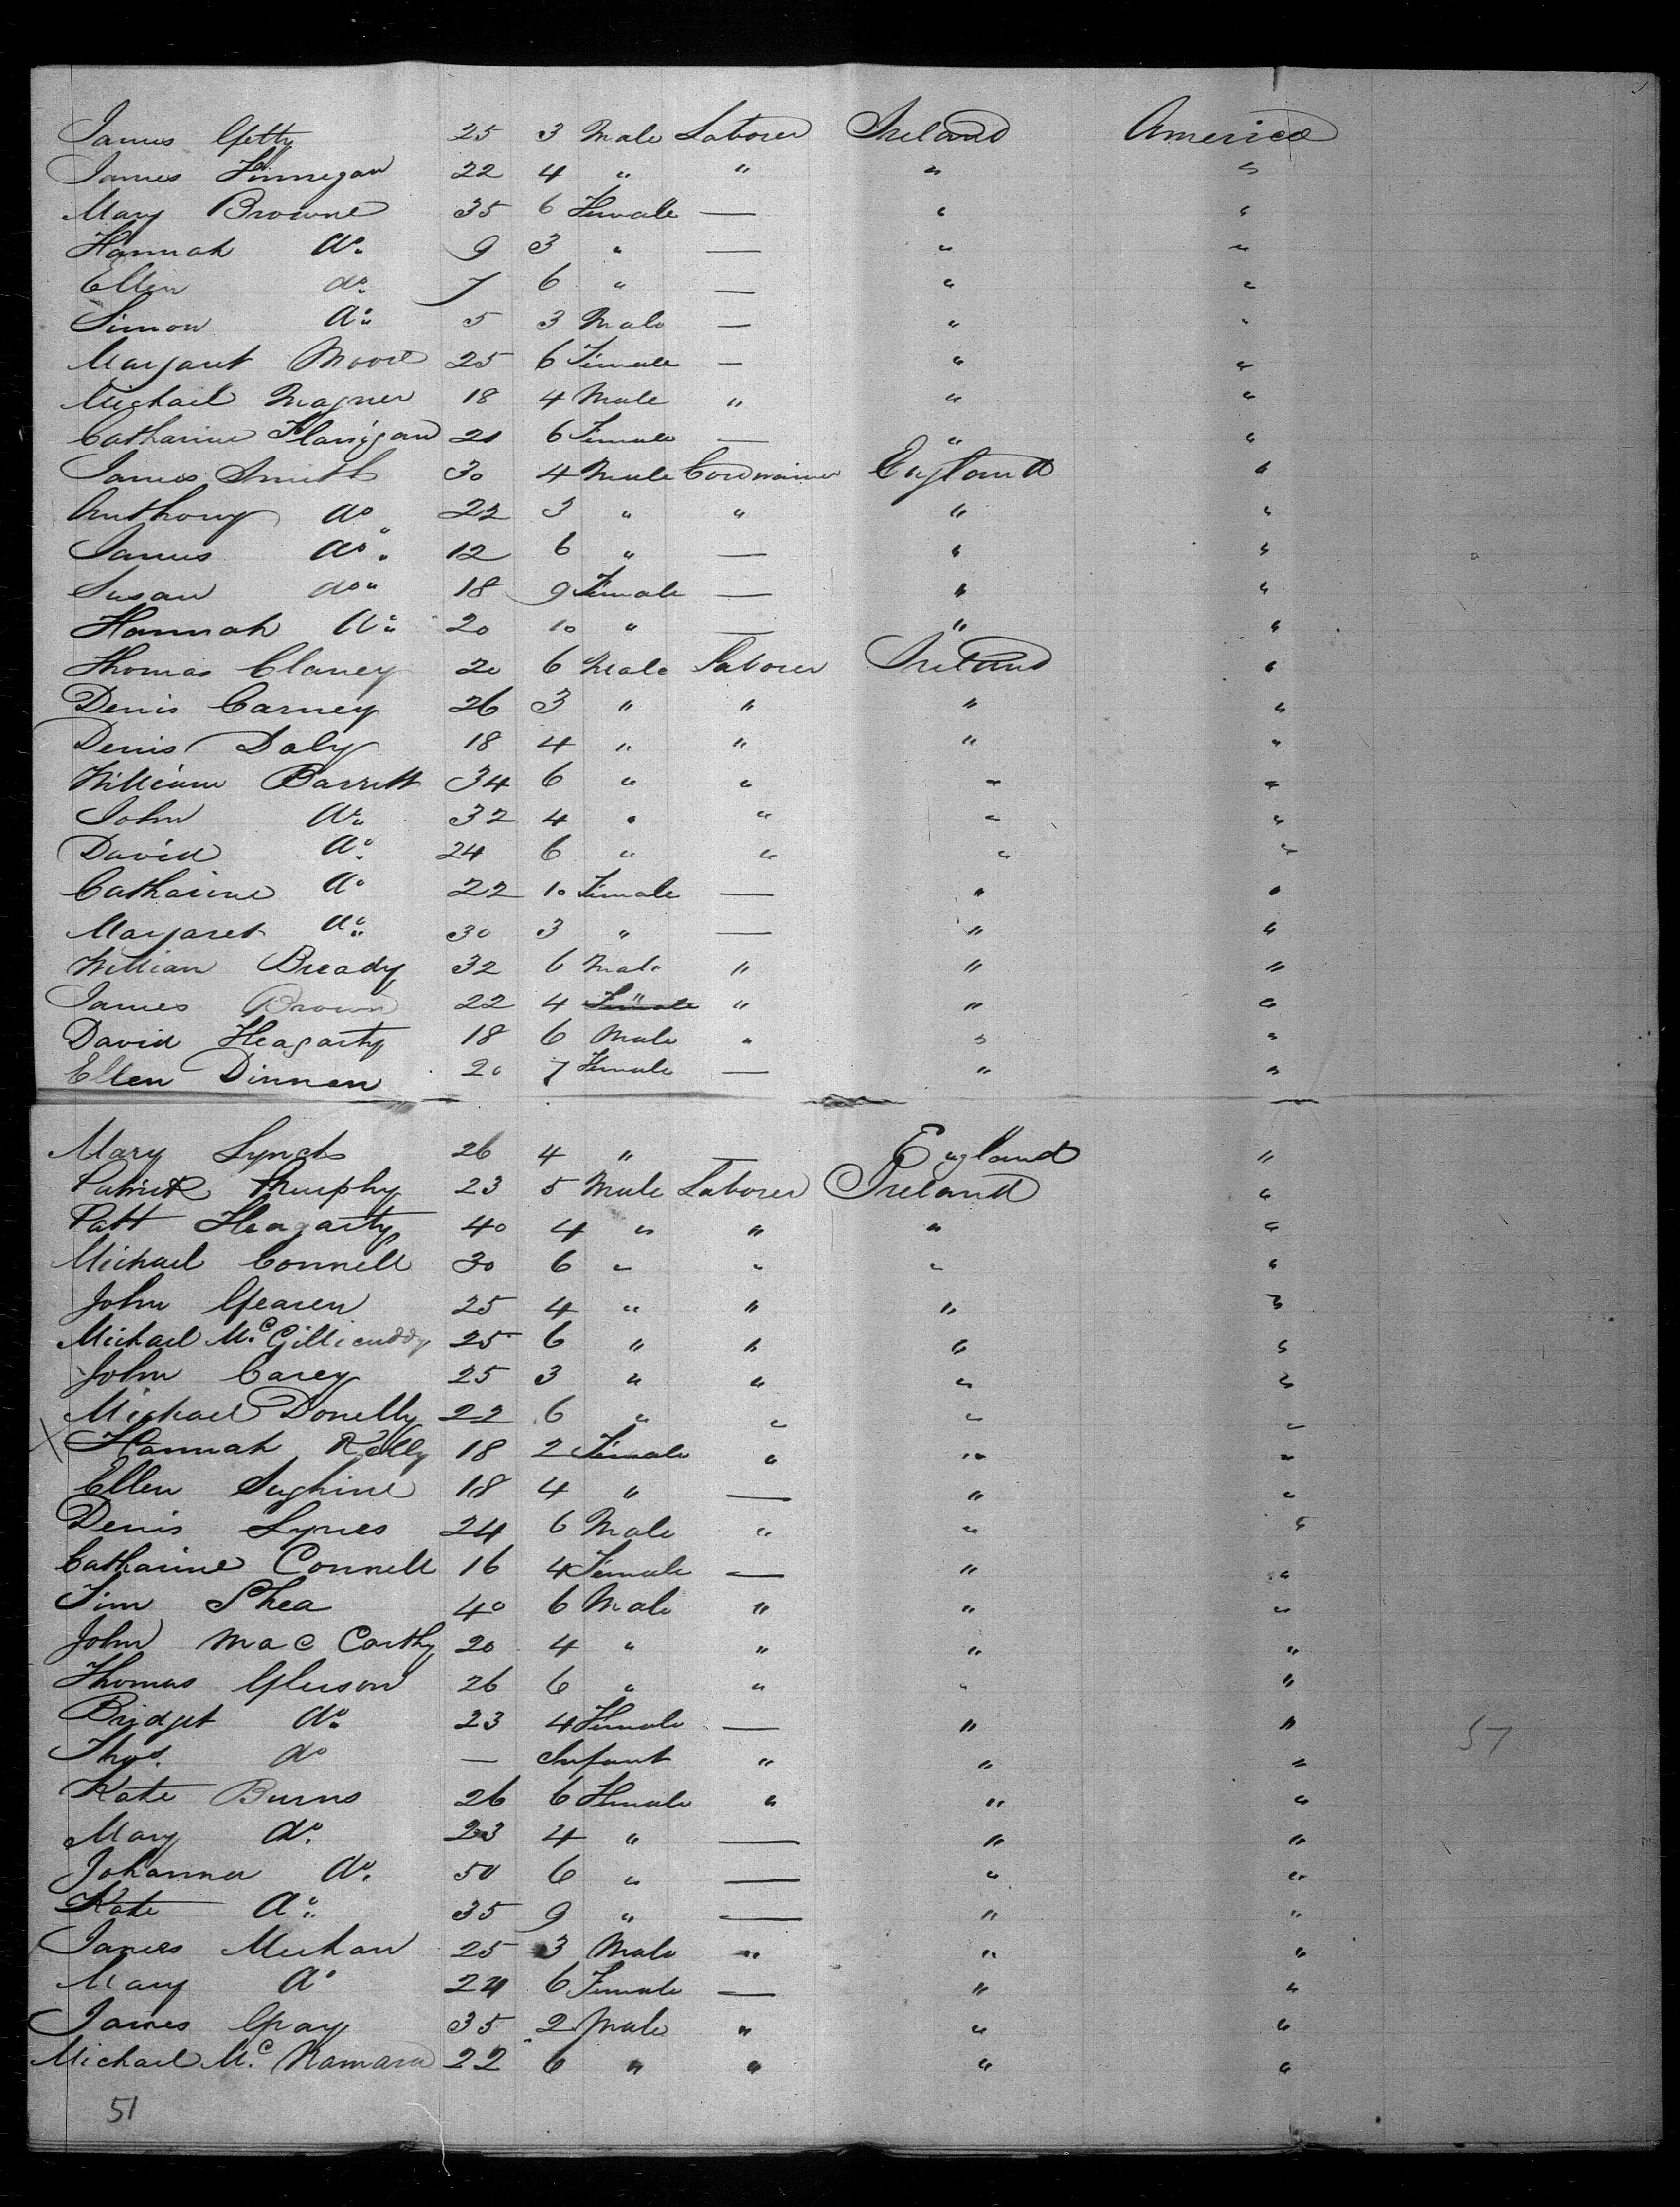 James Getty 25 3 Male Laborer Ireland America
James Finnegan 22 4 " " " "
Mary Browne 35 6 Female — " "
Hannah do 9 3 " — " "
Ellen do 7 6 " — " "
Simon do 5 3 Male — " "
Margaret Moore 25 6 Female — " "
Michael Magner 18 4 Male " " "
Catharine Flanigan 21 6 Female — " "
James Smith 30 4 Male Cordwainer England "
Anthony do 22 3 " " " "
James do 12 6 " — " "
Susan do 18 9 Female — " "
Hannah do 20 10 " — " "
Thomas Clancy 20 6 Male Laborer Ireland "
Denis Carney 26 3 " " " "
Denis Daly 18 4 " " " "
William Barrett 34 6 " " " "
John do 32 4 " " " "
David do 24 6 " " " "
Catharine do 22 10 Female — " "
Margaret do 30 3 " — " "
William Bready 32 6 Male " " "
James Brown 22 4 Female " " " "
David Heagarty 18 6 Male " " "
Ellen Dinnen 20 7 Female — " "
Mary Lynch 26 4 " — England "
Patrick Murphy 23 5 Male Laborer Ireland "
Patt Heagarty 40 4 " " " "
Michael Connell 30 6 " " " "
John Gearen 25 4 " " " "
Michael Mc Gillicuddy 25 6 " " " "
John Carey 25 3 " " " "
Michael Donelly 22 6 " " " "
X Hannah Kelly 18 2 Female " " "
Ellen Sughine 18 4 " — " "
Denis Lynes 24 6 Male " " "
Catharine Connell 16 4 Female — " "
Tim Shea 40 6 Male " " "
John Mac Carthy 20 4 " " " "
Thomas Gleeson 26 6 " " " "
Bridget do 23 4 Female — " "
Thos. do — Infant " " "
Kate Burns 26 6 Female " " "
Mary do 23 4 " — " "
Johanna do 50 6 " — " "
Kate do 35 9 " — " "
James Meehan 25 3 Male " " "
Mary do 24 6 Female — " "
James Gray 35 2 Male " " "
Michael Mc Namara 22 6 " " " "
51
57